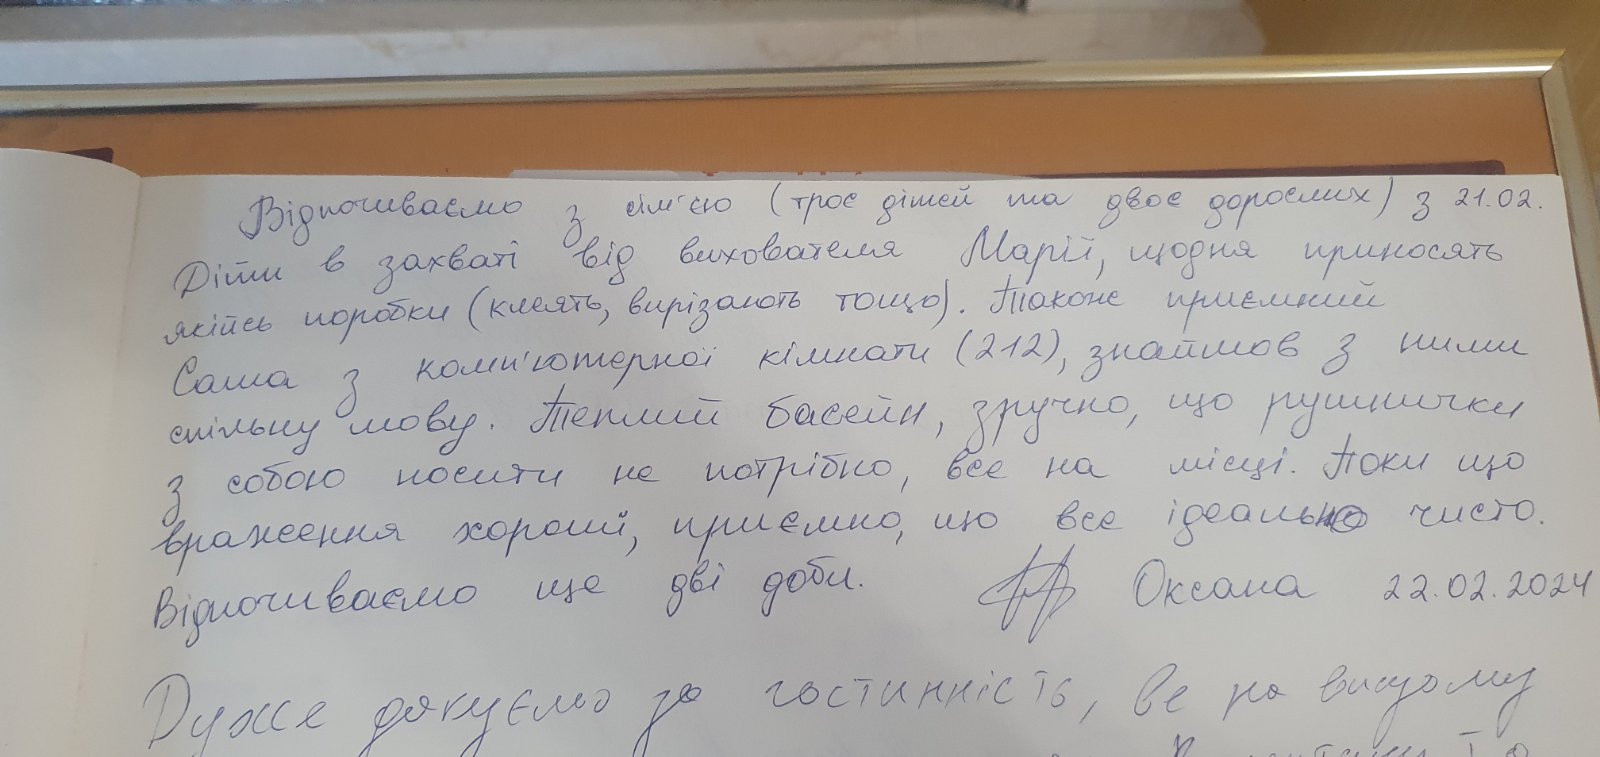 Відпочиваємо з сім'єю (троє дітей та двоє дорослих) з 21.02.
Діти в захваті від вихователя Марії, щодня приносять
якійсь поробки (клеять, вирізають тощо). Також приємний
Саша з комп'ютерної кімнати (212), знайшов з ними
спільну мову. Теплий басейн, зручно, що рушнички
з собою носити не потрібно, все на місці. Поки що
враження хороші, приємно, що все ідеально чисто.
Відпочиваємо ще дві доби. Оксана 22.02.2024
Дуже дякуємо за гостинність, все на вищому